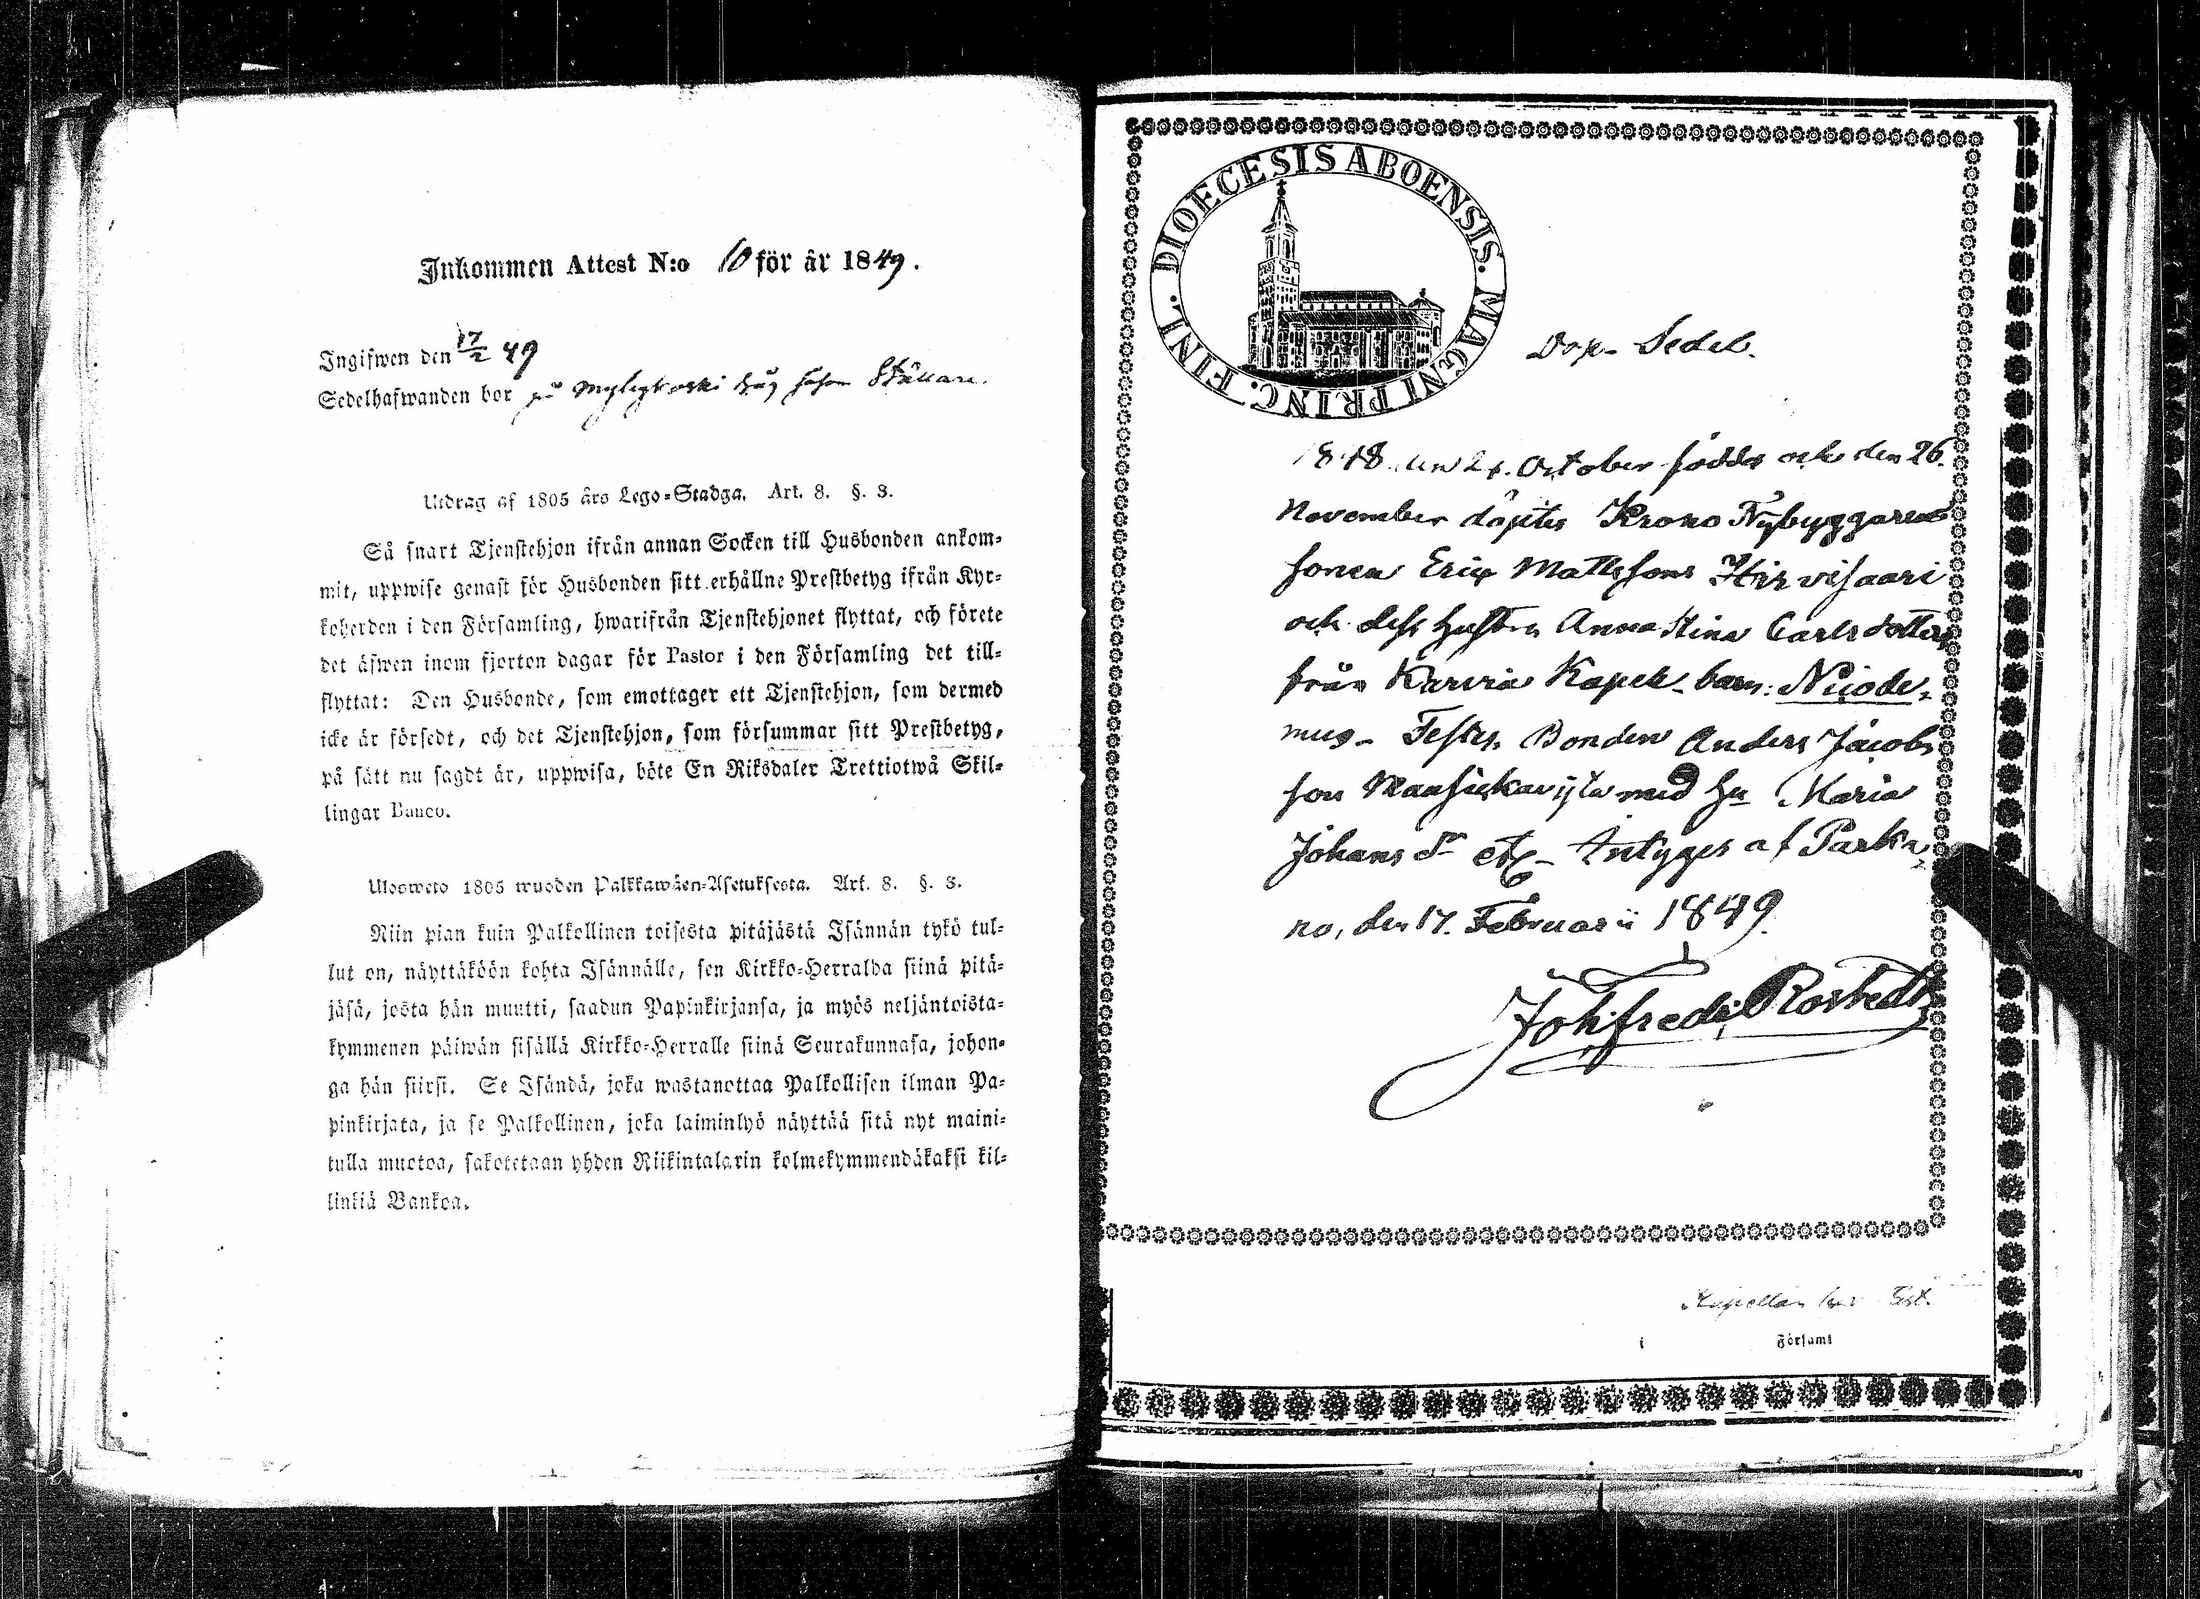 Inkommen Attest N:o 10 för år 1849.
Ingifwen den 17/2 49
Sedelhafwanden bor på
Utdrag af 1805 års Lego-Stadga. Art. 8. §. 3.
Så snart Tjenstehjon ifrån annan Socken till Husbonden ankom-
mit, uppwise genast för Husbonden sitt erhållne Prestbetyg ifrån Kyr-
koherden i den Församling, hwarifrån Tjenstehjonet flyttat, och förete
det äfwen inom fjorton dagar för Pastor i den Församling det till-
flyttat: Den Husbonde, som emottager ett Tjenstehjon, som dermed
icke är försedt, och det Tjenstehjon, som försummar sitt Prestbetyg,
på sätt nu sagdt är, uppwisa, böte En Riksdaler Trettiotwå Skil-
lingar Banco.
Ulosweto 1805 wuoden Palkkawäen-Asetuksesta. Art. 8. §. 3.
Niin pian kuin Palkollinen toisesta pitäjästä Isännän tykö tul-
lut on, näyttäköön kohta Isännälle, sen Kirkko-Herralda siinä pitä-
jäsä, josta hän muutti, saadun Papinkirjansa, ja myös neljäntoista-
kymmenen päiwän sisällä Kirkko-Herralle siinä Seurakunnasa, johon-
ga hän siirsi. Se Isändä, joka wastanottaa Palkollisen ilman Pa-
pinkirjata, ja se Palkollinen, joka laiminlyö näyttää sitä nyt maini-
tulla muotoa, sakotetaan yhden Riikintalarin kolmekymmendäkaksi kil-
linkiä Bankoa.
DIOECESIS ABOENSIS. MAGNI PRINC. FINL.
Dop-Sedel.
1848 den 24. October föddes och den 26.
November döptes Krono Nybyggare
sonen Eric Mattssons Hirvisaari
och dess hustru Anna Stina Carls dotters
från Karvia Kapell barn: Nicode-
mus. Testes, Bonden Anders Jacobs
son med Hu Maria
Johans dr etc. Intygas af Parka
no, den 17. Februarii 1849.
Joh: Fredr; Rostedt
Kapellan
i Församl